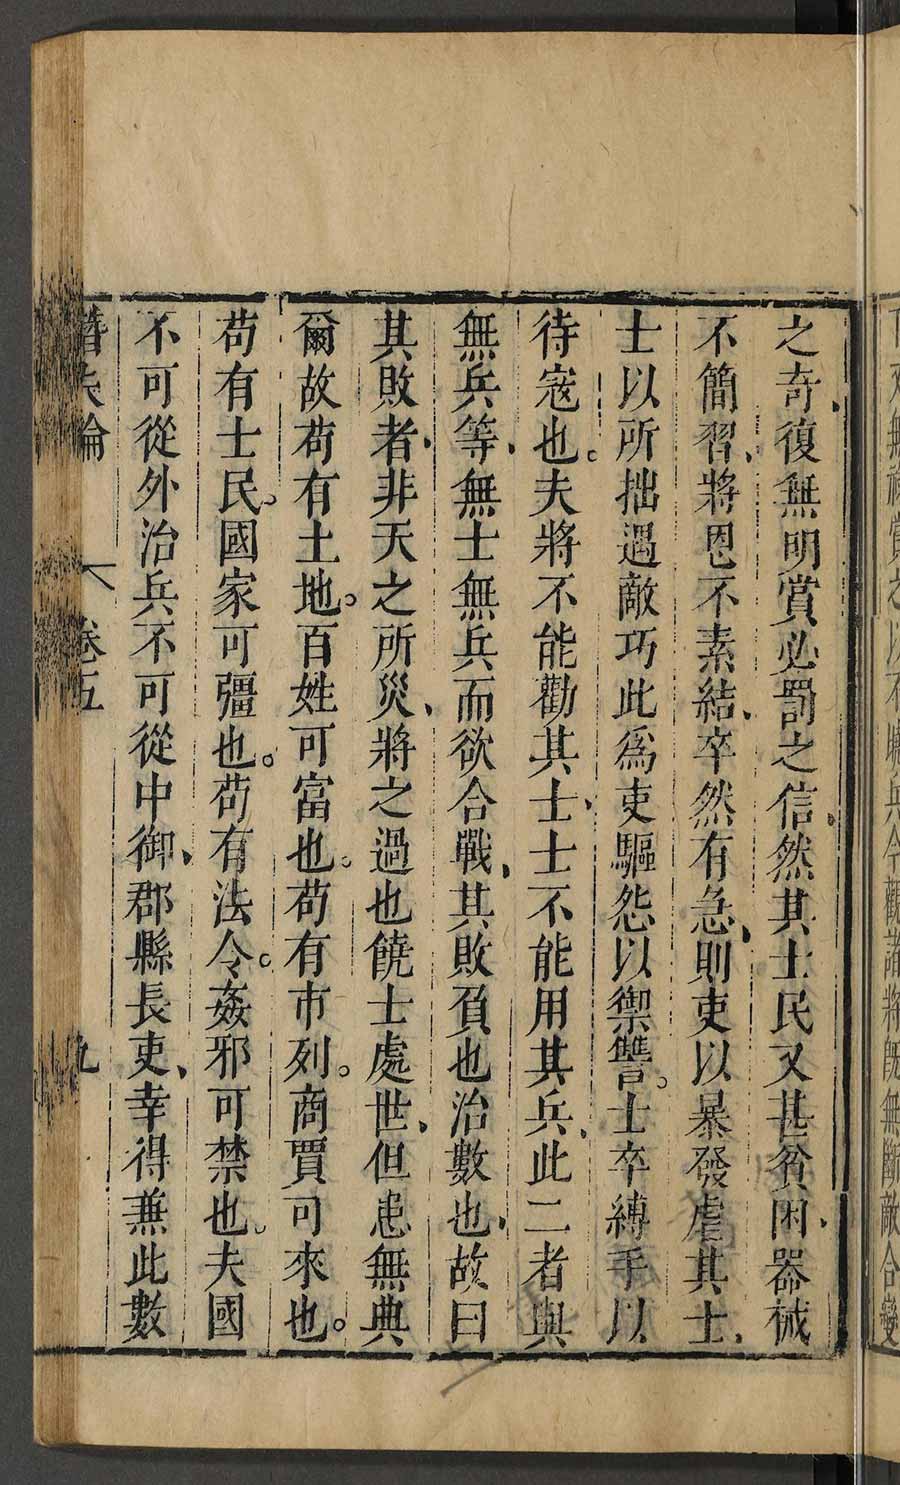 之奇復無明賞必罰之信然其士民又甚貧困器械
不簡習將恩不素結卒然有急則吏以暴發虐其士
士以所拙遇敵巧此爲吏驅怨以禦讐士卒縛手以
待寇也夫將不能勸其士士不能用其兵此二者與
無兵等無士無兵而欲合戰其敗負也治數也故曰
其敗者非天之所災將之過也饒士處世但患無典
爾故苟有土地百姓可富也苟有市列商賈可來也
苟有士民國家可彊也苟有法令姦邪可禁也夫國
不可從外治兵不可從中御郡縣長吏幸得兼此數
卷五
九